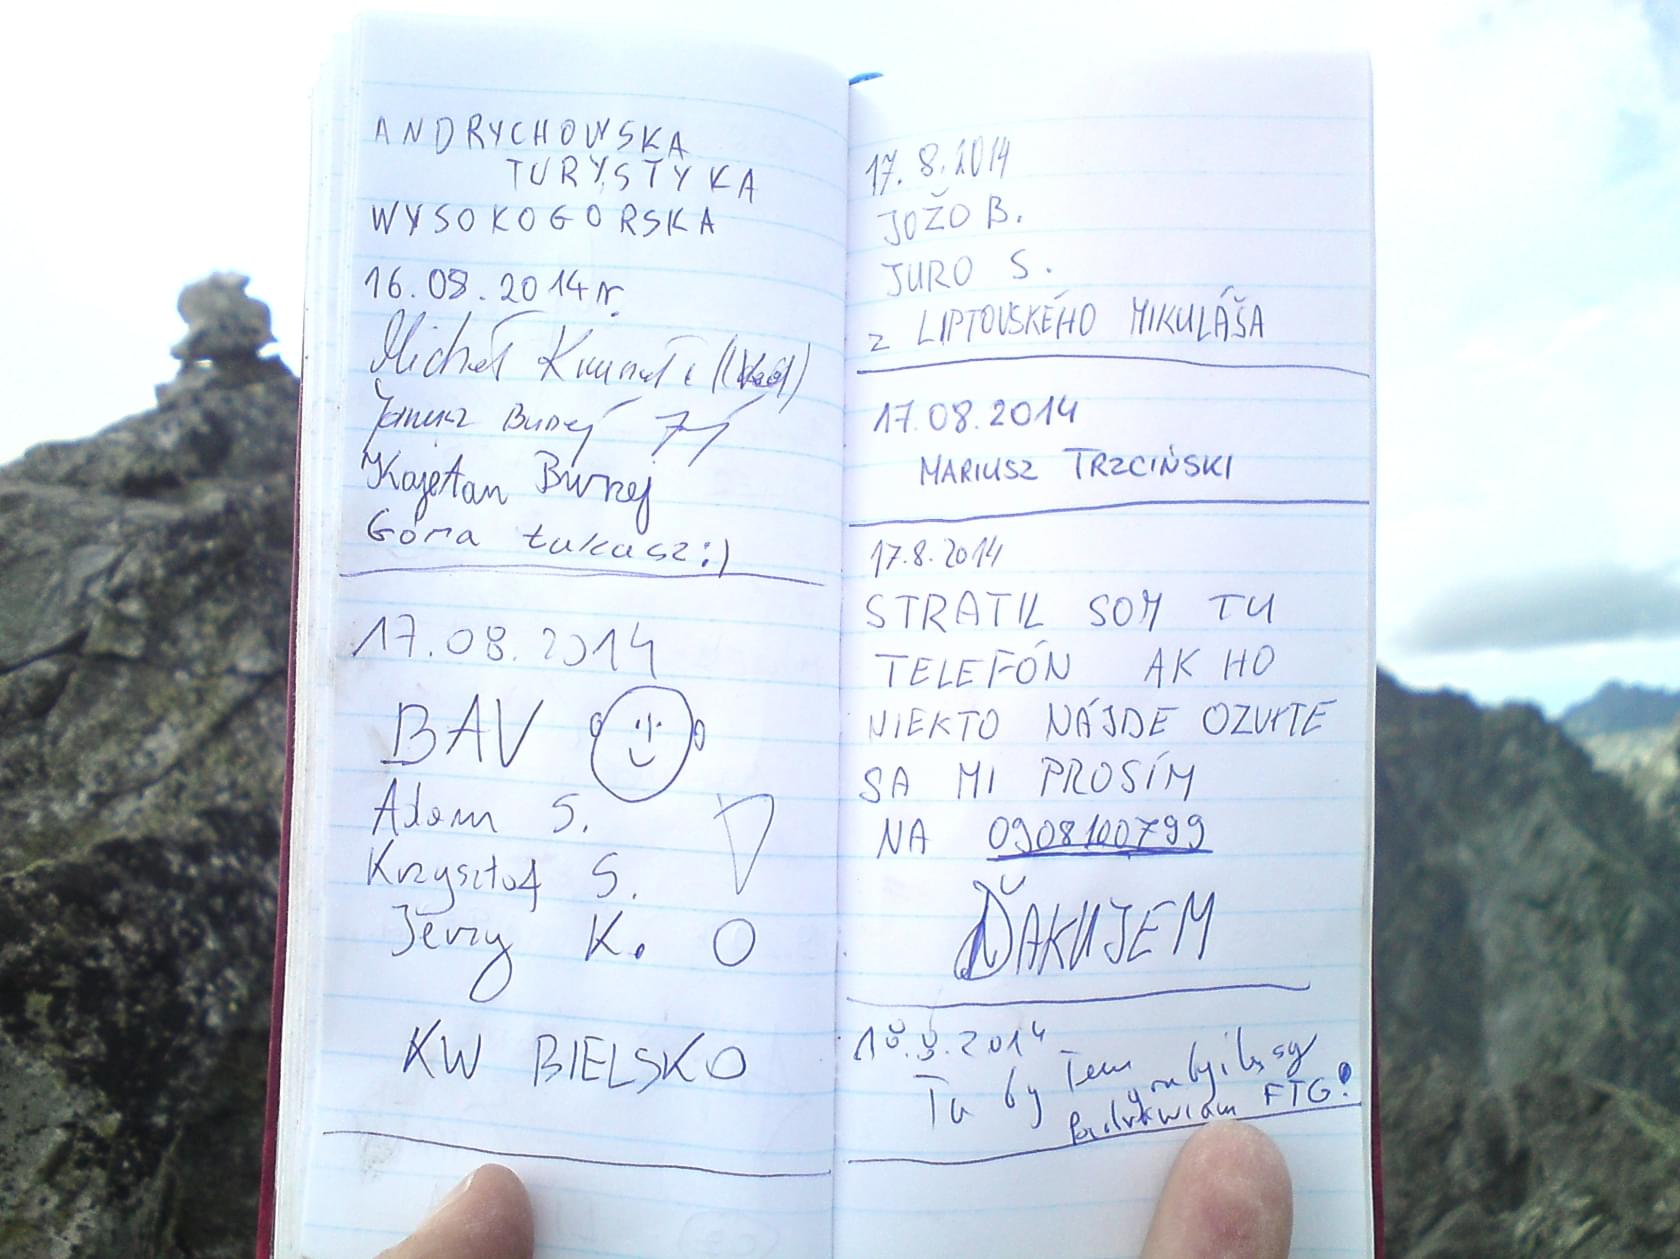 ANDRYCHOWSKA
TURYSTYKA
WYSOKOGORSKA
16.08.2014r.
Michał
Janusz Burzej
Kajetan Burzej
Góra Łukasz :)
17.08.2014
BAV
Adam S.
Krzysztof S.
Jerzy K.
KW BIELSKO
17.8.2014
JOŽO B.
JURO S.
z LIPTOVSKÉHO MIKULÁŠA
17.08.2014
MARIUSZ TRZCIŃSKI
17.8.2014
STRATIL SOM TU
TELEFÓN AK HO
NIEKTO NÁJDE OZVITE
SA MI PROSÍM
NA 0908100799
ĎAKUJEM
18.8.2014
Tu by
FTG!